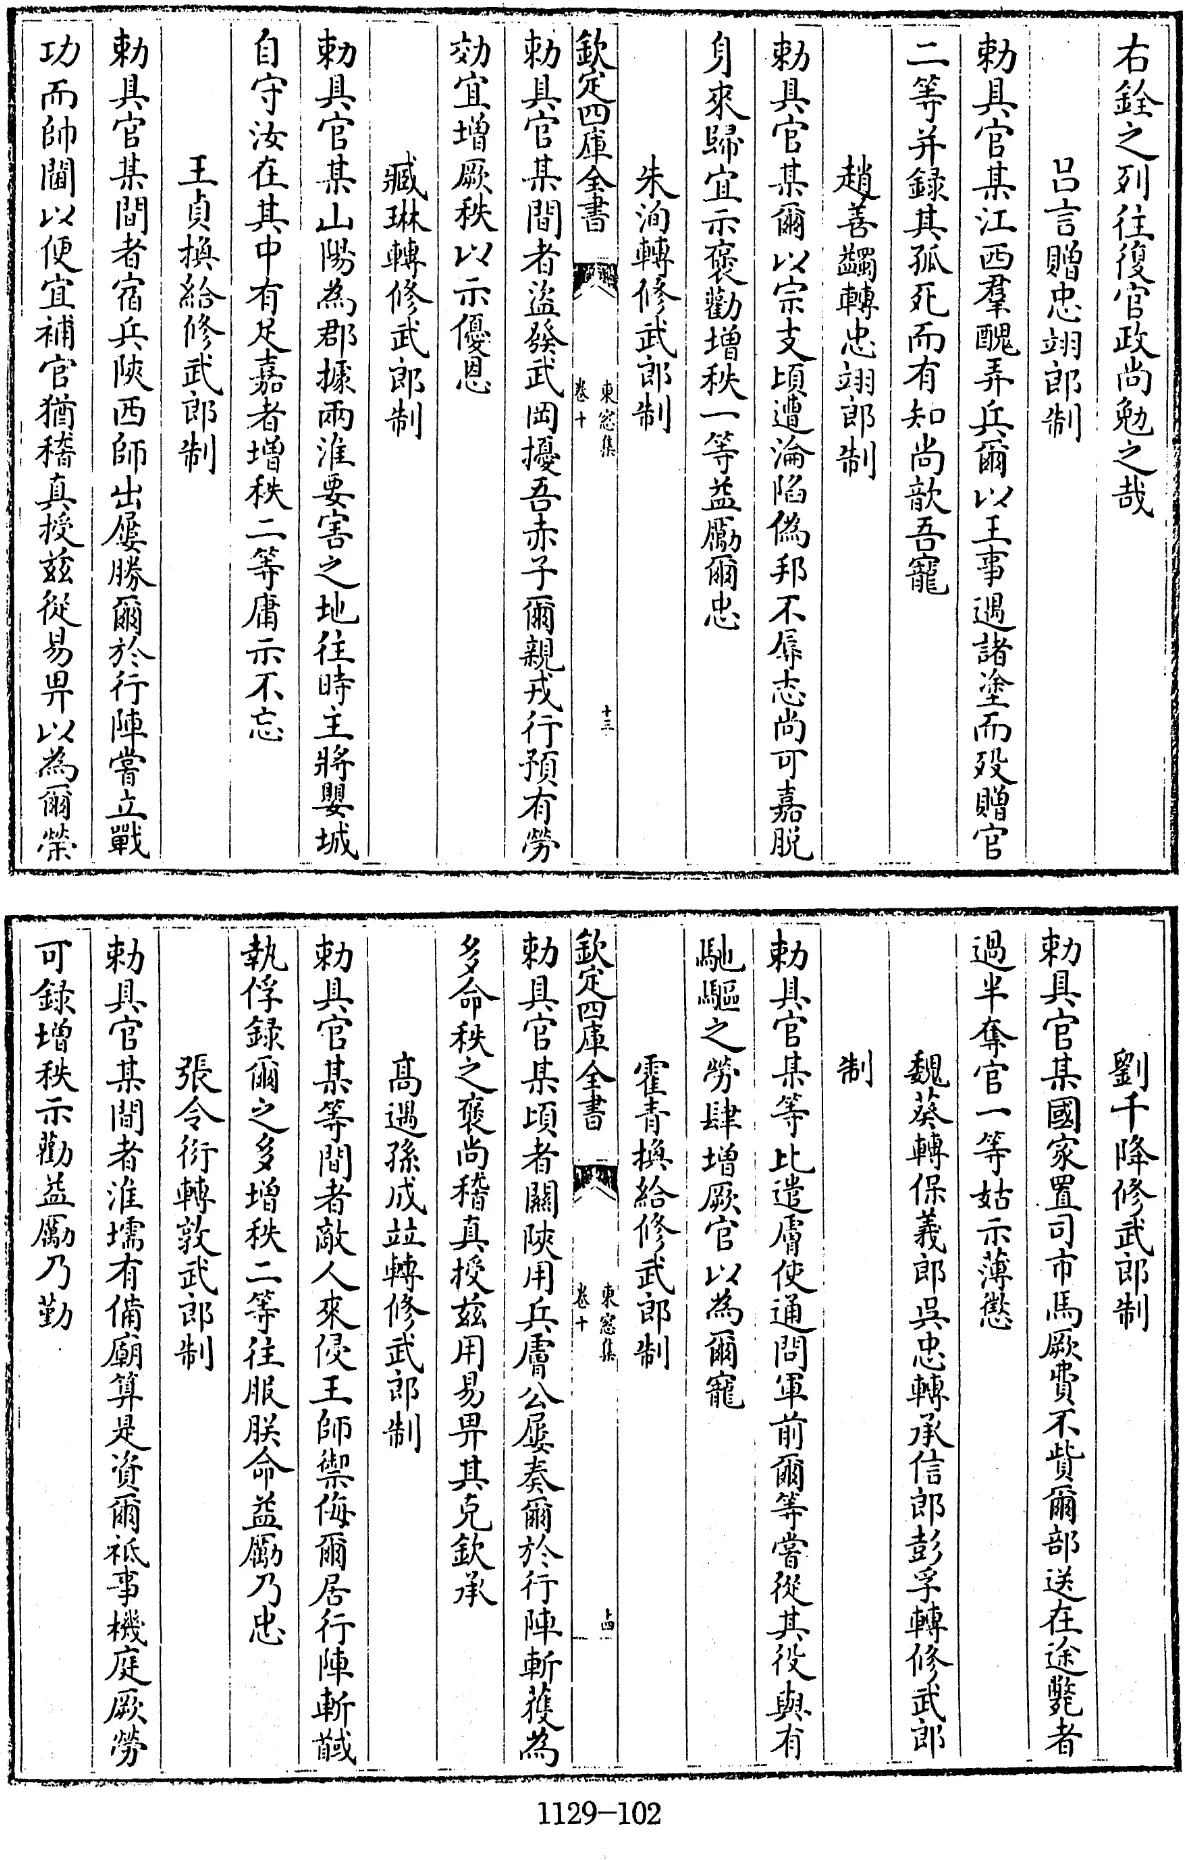 右銓之列往復官政尚勉之哉
呂言贈忠翊郎制
勅具官某江西羣醜弄兵爾以王事遇諸塗而歿贈官
二等并録其孤死而有知尚歆吾寵
趙善蠲轉忠翊郎制
勅具官某爾以宗支頃遭淪陷偽邦不辱志尚可嘉脱
身來歸宜示褒勸增秩一等益勵爾忠
朱洵轉修武郎制
欽定四庫全書
東窓集
卷十
十三
勅具官某間者盜發武岡擾吾赤子爾親戎行預有勞
効宜增厥秩以示優恩
臧琳轉修武郎制
勅具官某山陽為郡據兩淮要害之地往時主將嬰城
自守汝在其中有足嘉者增秩二等庸示不忘
王貞換給修武郎制
勅具官某間者宿兵陜西師出屢勝爾於行陣嘗立戰
功而帥閫以便宜補官猶稽真授兹從易畀以為爾榮
劉千降修武郎制
勅具官某國家置司市馬厥費不貲爾部送在途斃者
過半奪官一等姑示薄懲
魏葵轉保義郎吳忠轉承信郎彭孚轉修武郎
制
勅具官某等比遣膚使通問軍前爾等嘗從其役與有
馳驅之勞肆增厥官以為爾寵
霍青換給修武郎制
欽定四庫全書
東窓集
卷十
十四
勅具官某頃者關陜用兵膚公屢奏爾於行陣斬獲為
多命秩之褒尚稽真授兹用易畀其克欽承
高遇孫成竝轉修武郎制
勅具官某等間者敵人來侵王師禦侮爾居行陣斬馘
執俘録爾之多增秩二等往服朕命益勵乃忠
張令衍轉敦武郎制
勅具官某間者淮壖有備廟算是資爾祗事機庭厥勞
可録增秩示勸益勵乃勤
1129-102